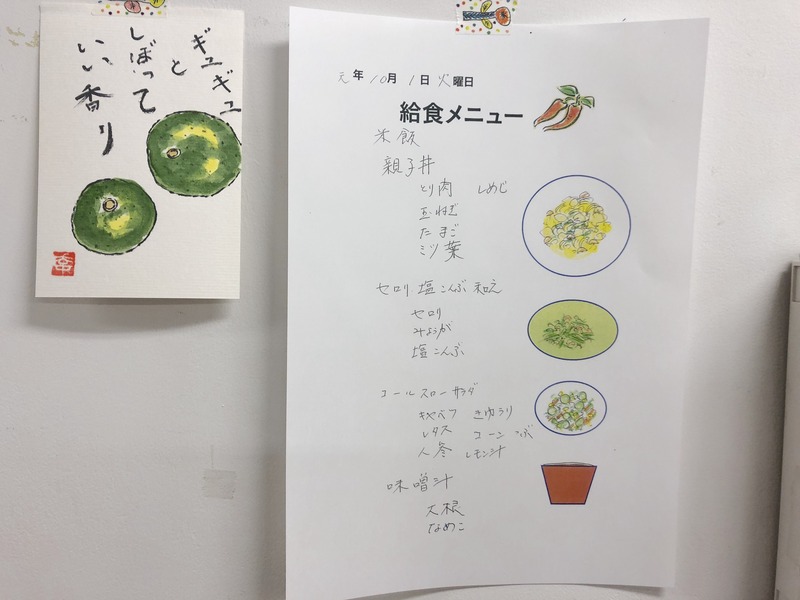 ギュギュ
と
しぼって
いい香り
元年10月1日火曜日
給食メニュー
米飯
親子丼
とり肉 しめじ
玉ねぎ
たまご
ミツ葉
セロリ塩こんぶ和え
セロリ
みょうが
塩こんぶ
コールスローサラダ
キャベツ きゅうり
レタス コーン
人参 レモン汁
味噌汁
大根
なめこ